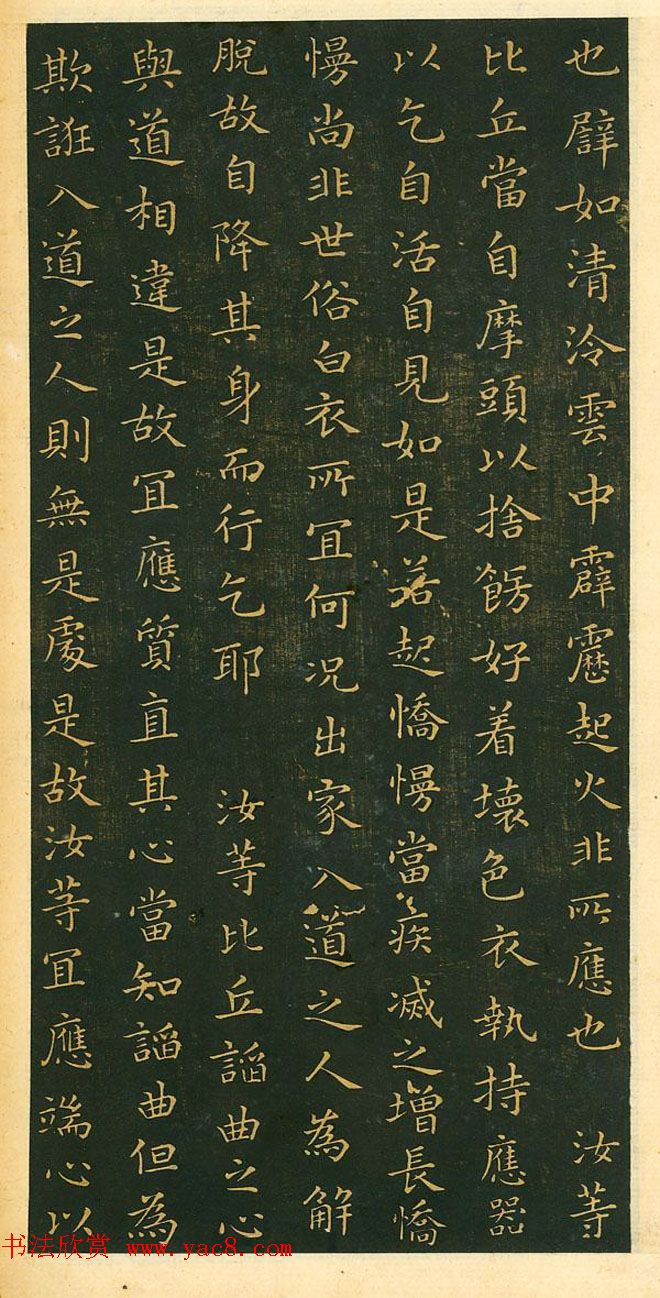 也譬如清冷雲中霹靂起火非所應也 汝等
比丘當自摩頭以捨餝好着壞色衣執持應器
以乞自活自見如是若起憍慢當疾滅之增長憍
慢尚非世俗白衣所宜何况出家入道之人為解
脫故自降其身而行乞耶 汝等比丘諂曲之心
與道相違是故宜應質直其心當知諂曲但為
欺誑入道之人則無是處是故汝等宜應端心以
书法欣赏 www.yac8.com